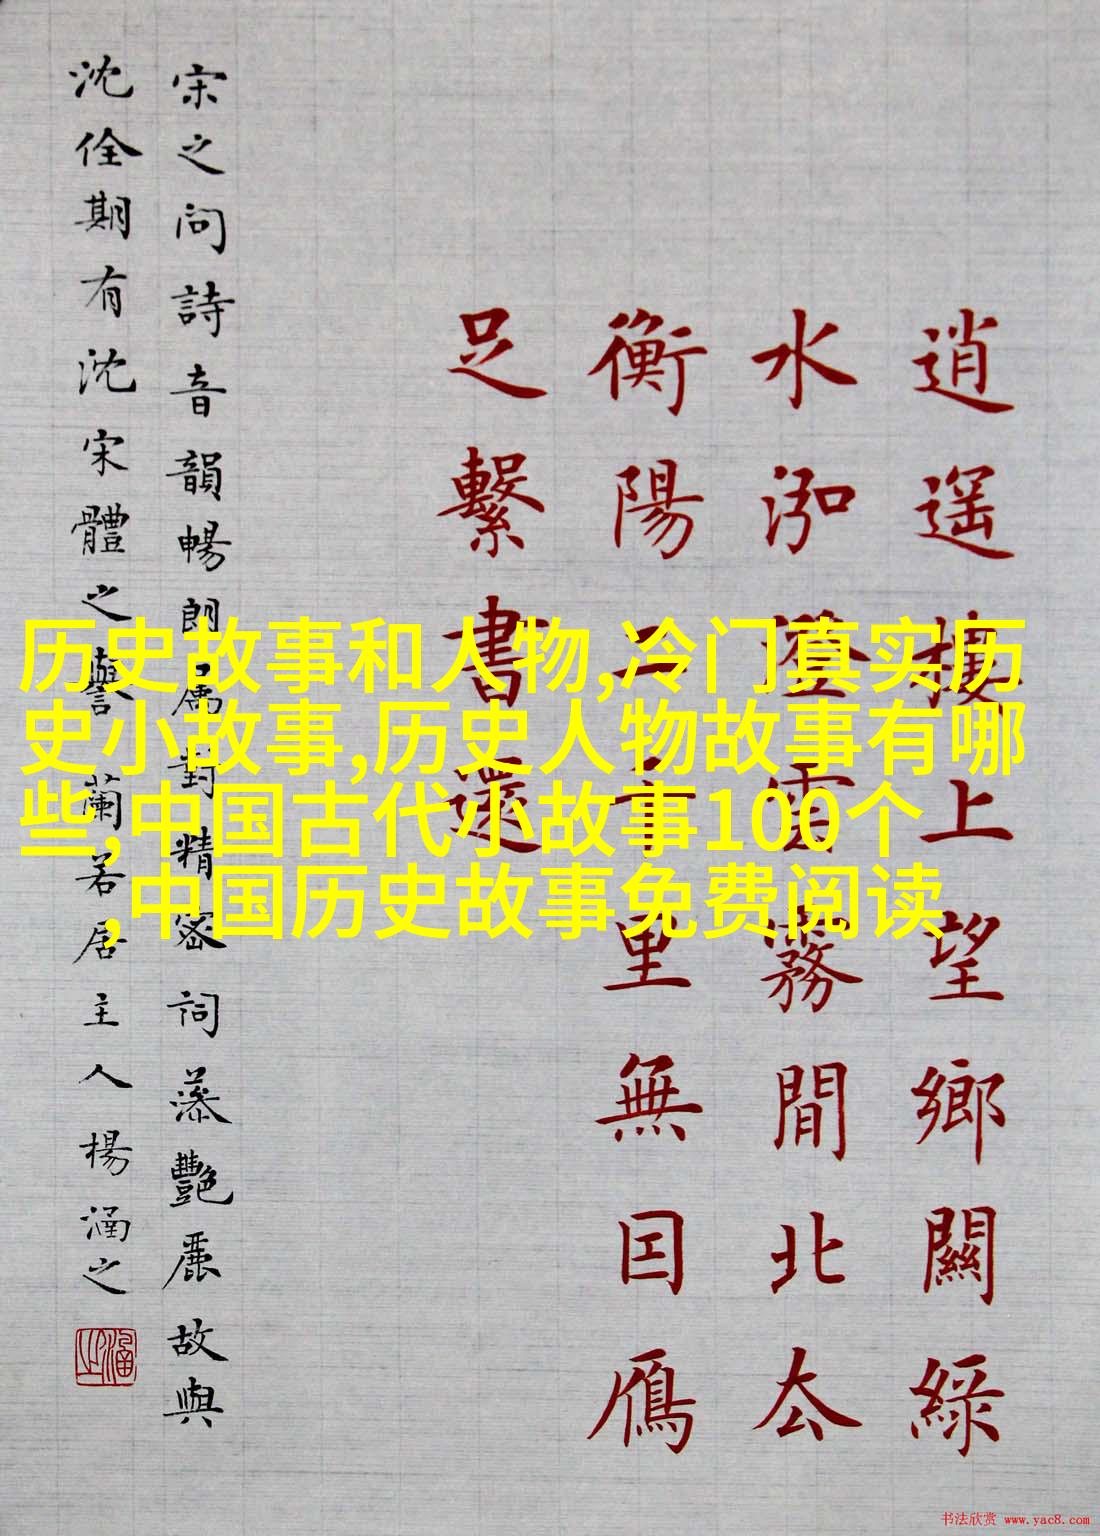 逍遥樓上望鄉關綠
水泓澄雲霧間北去
衡陽二千里無囙雁
足繫書還
宋之問詩音韻暢朗屬對精密詞藻艷麗故與
沈佺期有沈宋體之譽 蘭若居主人楊涵之
历史故事和人物,冷门真实历
史小故事,历史人物故事有哪
些,中国古代小故事100个
,中国历史故事免费阅读
书法欣赏 www.yac8.com